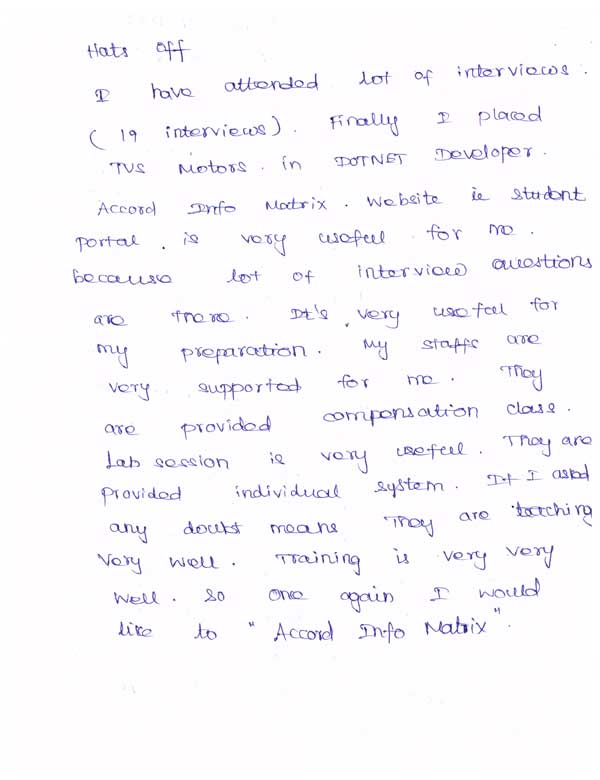 Hats off
I have attended lot of interviews.
(19 interviews). Finally I placed
TVS Motors. in DOTNET Developer.
Accord Info Matrix. Website ie student
portal. is very useful for me.
because lot of interview questions
are there. It's very useful for
my preparation. My staffs are
very supported for me. They
are provided compensation class.
Lab session is very useful. They are
provided individual system. If I asked
any doubt means they are teaching
very well. Training is very very
well. So one again I would
like to "Accord Info Matrix".